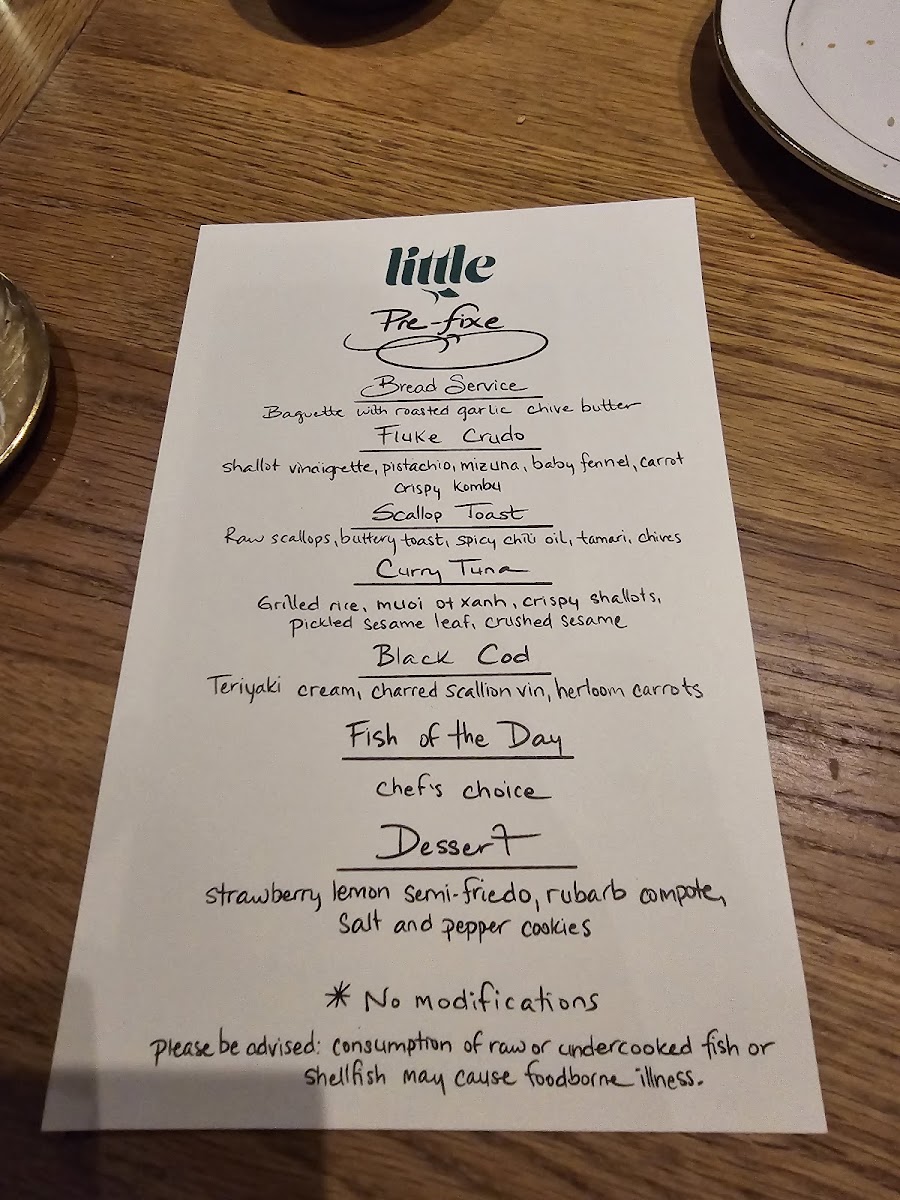 little
Pre-fixe
Bread Service
Baguette with roasted garlic chive butter
Fluke Crudo
shallot vinaigrette, pistachio, mizuna, baby fennel, carrot
crispy Kombu
Scallop Toast
Raw scallops, buttery toast, spicy chili oil, tamari, chives
Curry Tuna
Grilled rice, muoi ot xanh, crispy shallots,
pickled sesame leaf, crushed sesame
Black Cod
Teriyaki cream, charred scallion vin, herloom carrots
Fish of the Day
chef's choice
Dessert
strawberry lemon semi-friedo, rubarb compote,
Salt and pepper cookies
* No modifications
please be advised: consumption of raw or undercooked fish or
shellfish may cause foodborne illness.